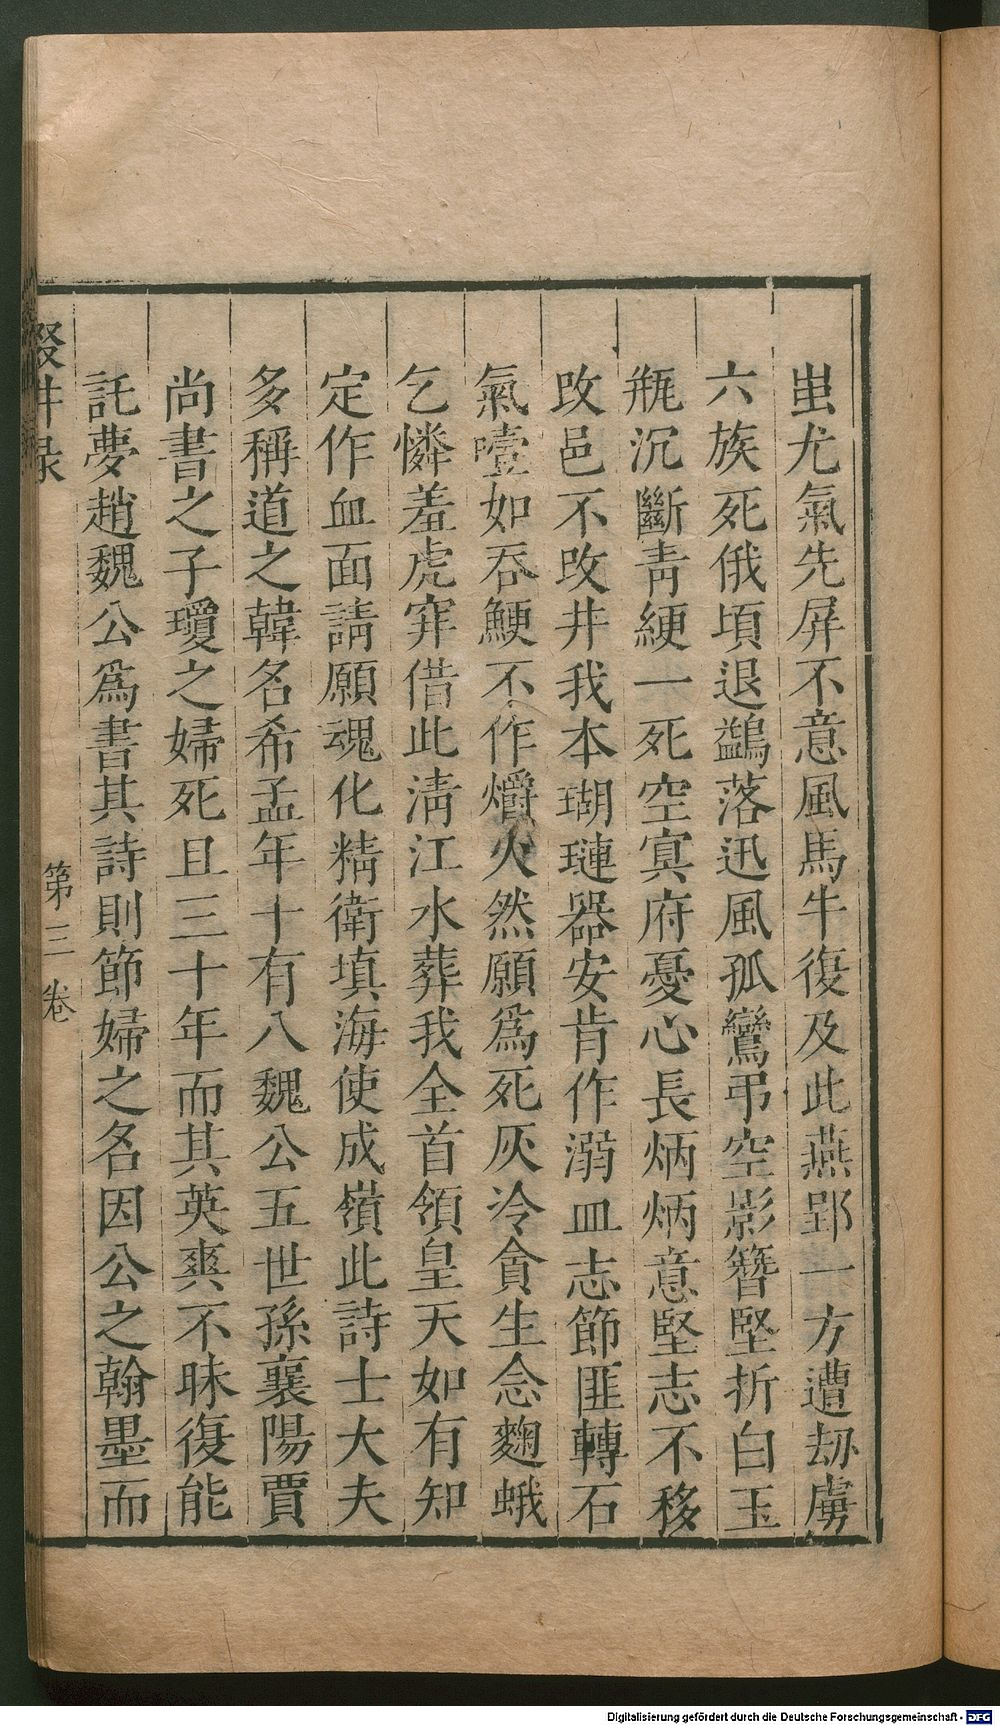 蚩尤氣先屏不意風馬牛復及此燕郢一方遭劫虜
六族死俄頃退鷁落迅風孤鸞弔空影簪堅折白玉
瓶沉斷青綆一死空冥府憂心長炳炳意堅志不移
改邑不改井我本瑚璉器安肯作溺皿志節匪轉石
氣噎如吞鯁不作爝火然願為死灰冷貪生念麴蛾
乞憐羞虎穽借此清江水葬我全首領皇天如有知
定作血面請願魂化精衛填海使成嶺此詩士大夫
多稱道之韓名希孟年十有八魏公五世孫襄陽賈
尚書之子瓊之婦死且三十年而其英爽不昧復能
託夢趙魏公為書其詩則節婦之名因公之翰墨而
輟畊錄 第三卷
Digitalisierung gefördert durch die Deutsche Forschungsgemeinschaft - DFG